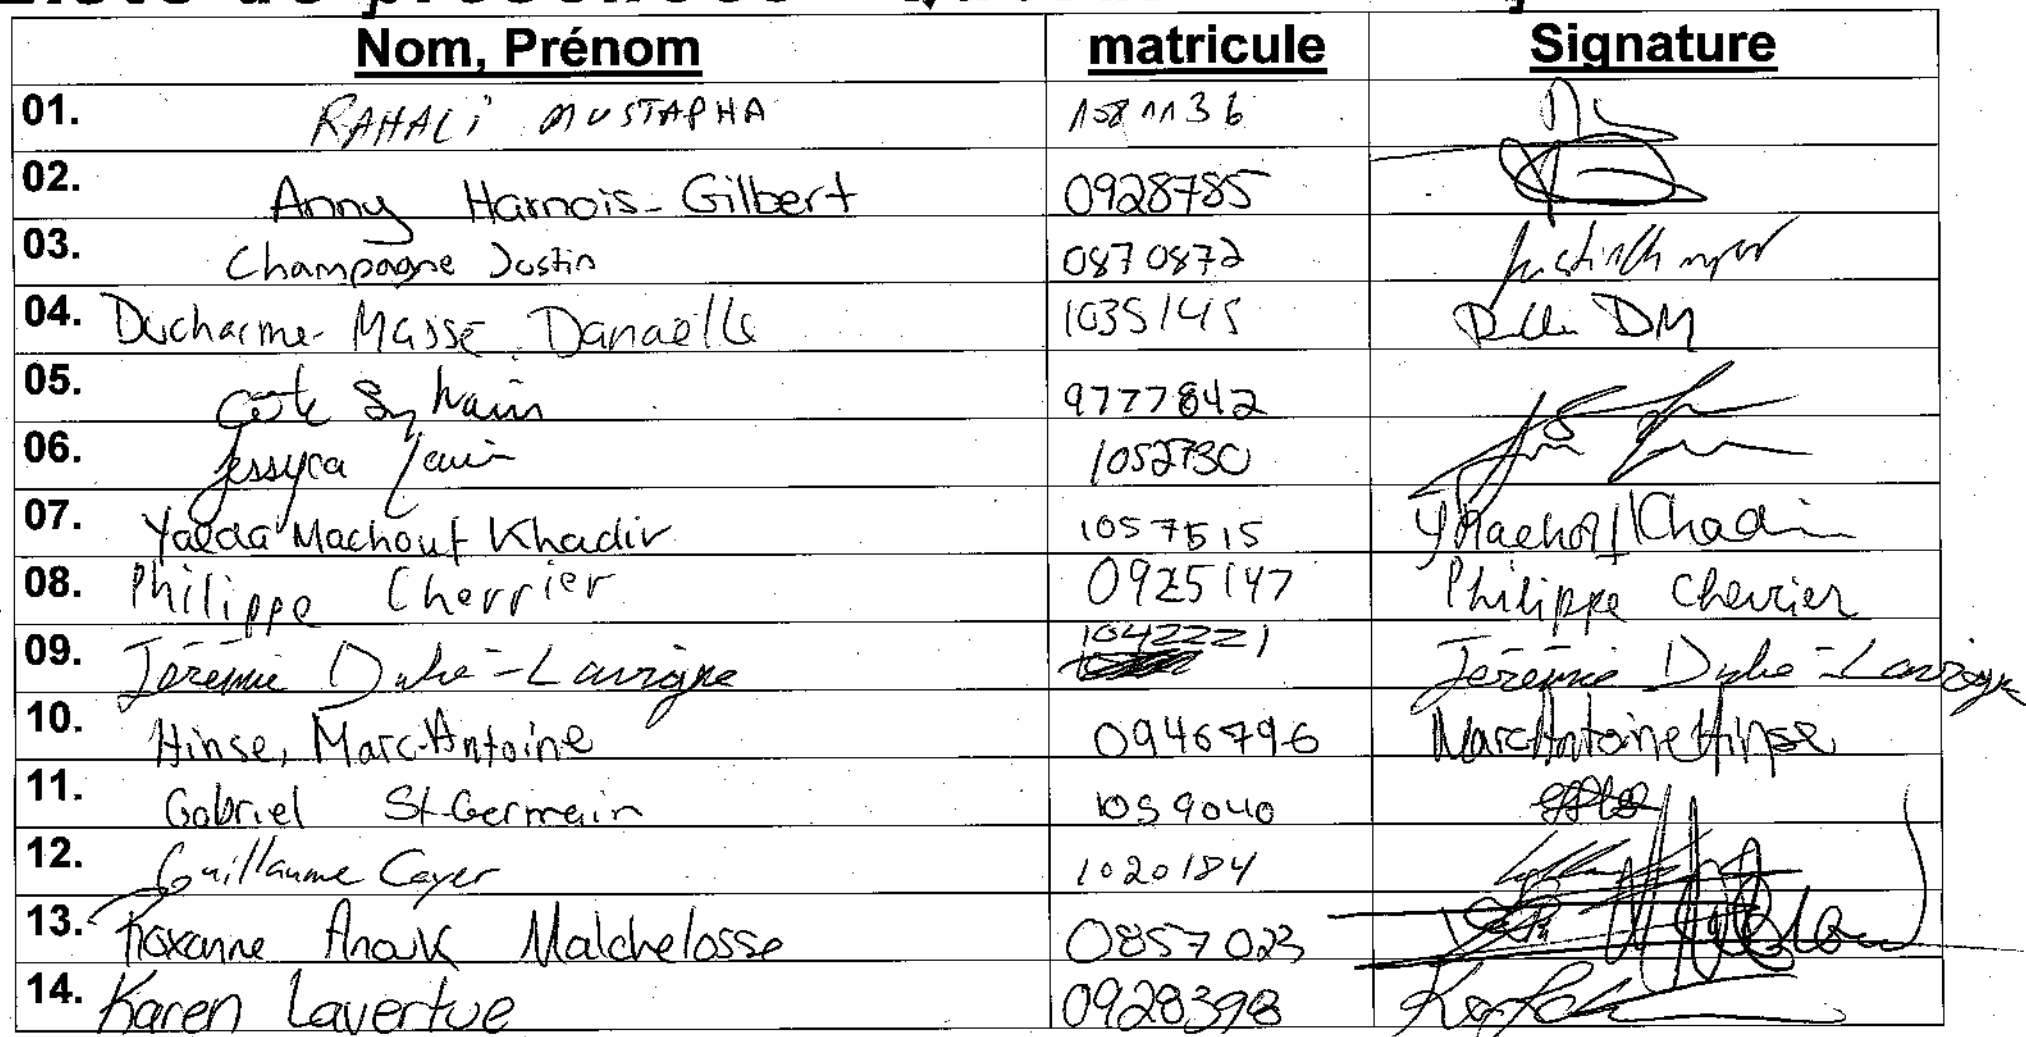 Liste de présences
Nom, Prénom matricule Signature
01. RAHALi MUSTAPHA 1581136
02. Anny Harnois-Gilbert 0928785
03. Champagne Justin 0870872
04. Ducharme-Massé, Danaëlle 1035145 DM
05. Côté Sylvain 9777842
06. Jessyca 1052730
07. Yalda Machouf Khadir 1057515 YMachouf Khadir
08. Philippe Cherrier 0925147 Philippe Cherrier
09. Jérémie Dubé-Lavigne 1042221 Jérémie Dubé-Lavigne
10. Hinse, Marc-Antoine 0946796 Marc-Antoine Hinse
11. Gabriel St-Germain 1059040
12. Guillaume Cayer 1020184
13. Roxanne Anouk Malchelosse 0857023
14. Karen Lavertue 0928398